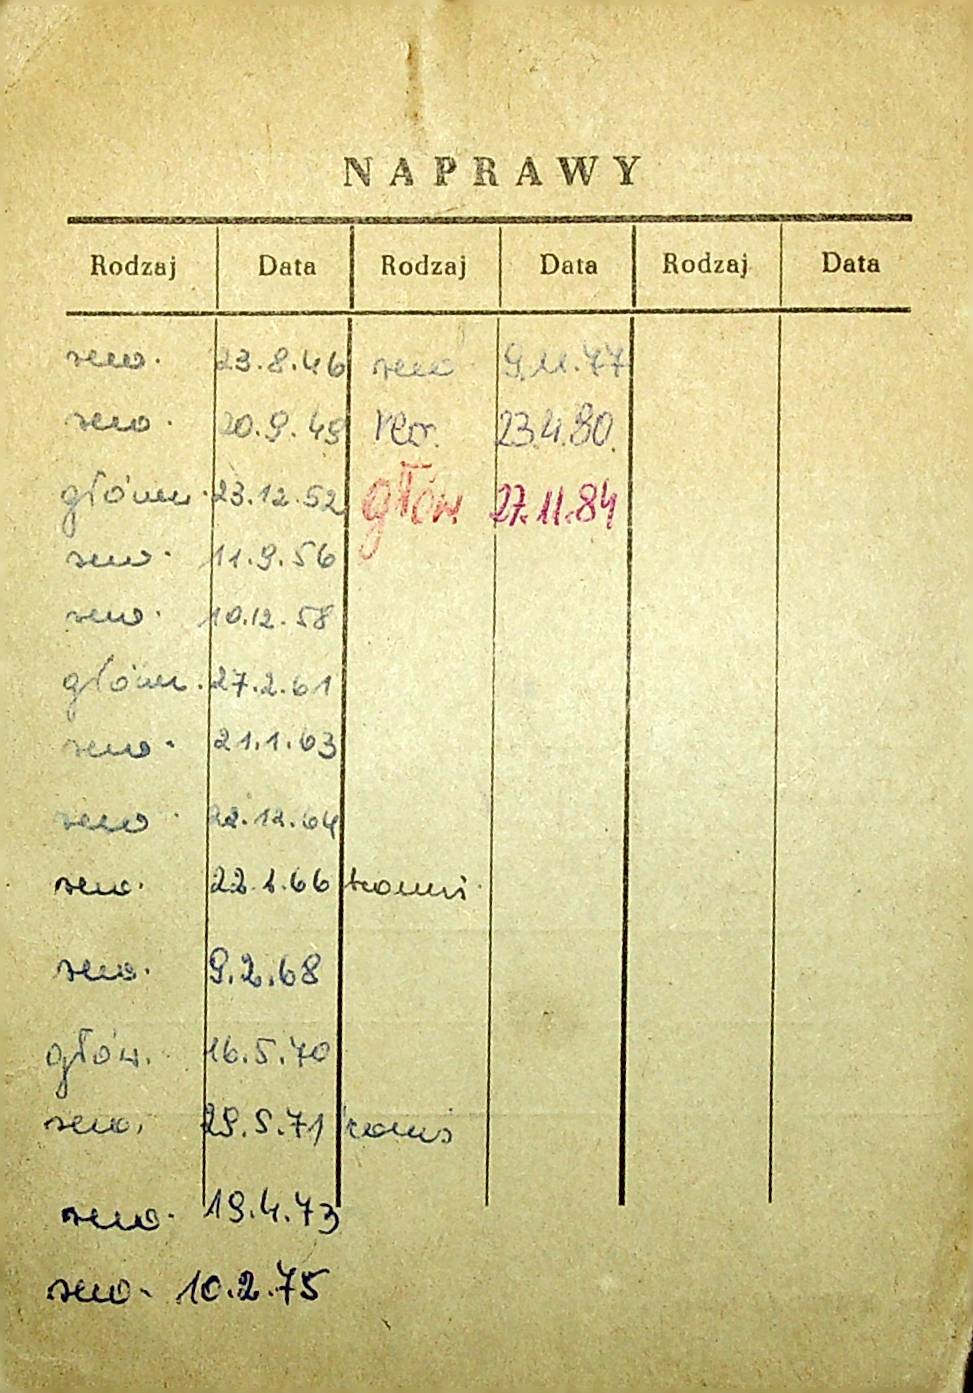 NAPRAWY
Rodzaj Data Rodzaj Data Rodzaj Data
rew. 23.8.46 rew 9.11.77
rew. 20.9.49 rew. 23.4.80.
główn. 23.12.52 głów. 27.11.84
rew. 11.9.56
rew. 10.12.58
główn. 27.2.61
rew. 21.1.63
rew. 22.12.64
rew. 22.1.66
rew. 9.2.68
głów. 16.5.70
rew. 29.5.71
rew. 19.4.73
rew. 10.2.75